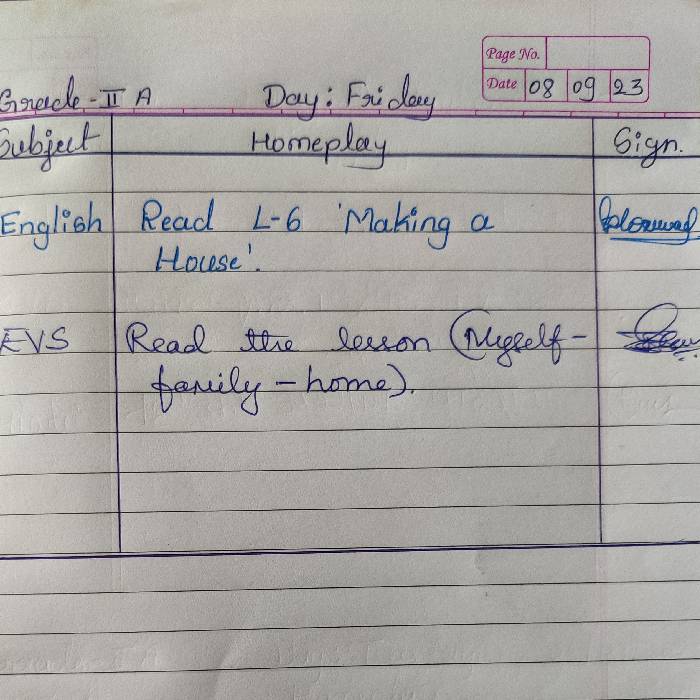 Page No.
Grade - II A Day: Friday Date 08 09 23
Subject Homeplay Sign.
English Read L-6 'Making a
House'.
EVS Read the lesson (Myself-
family - home).